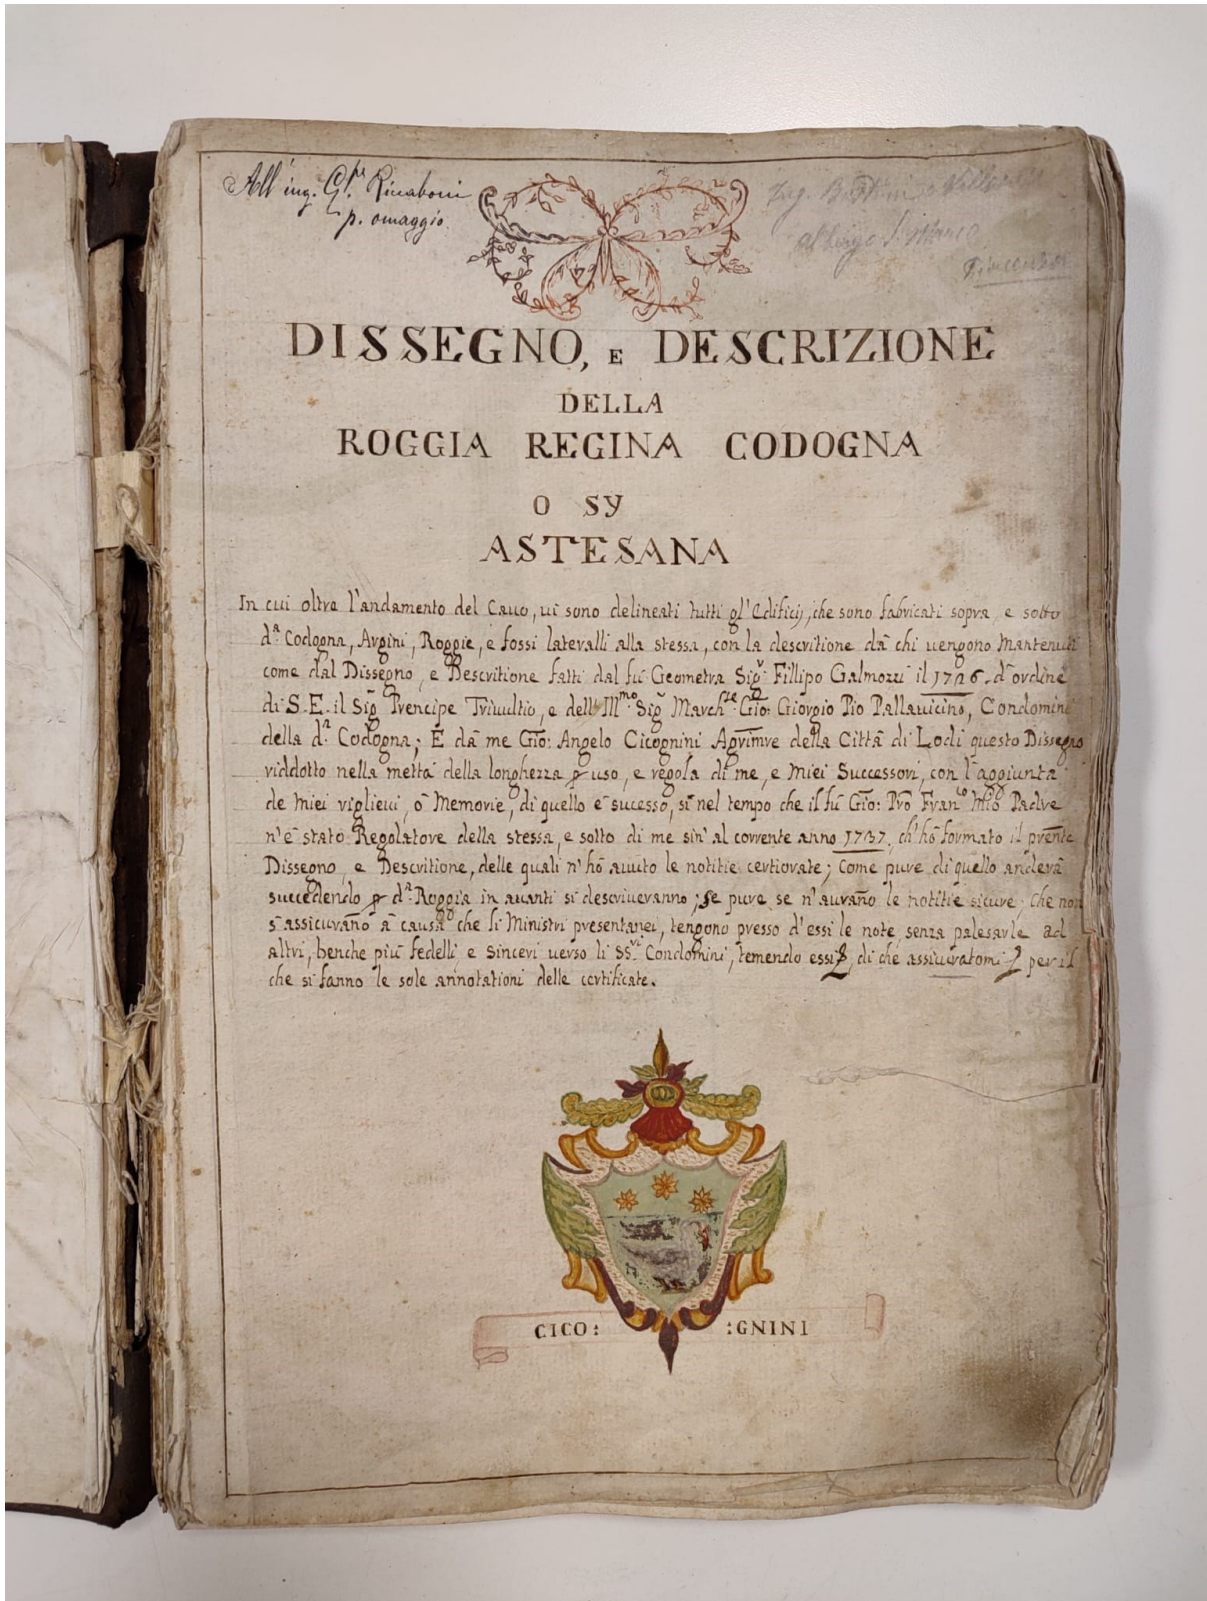 All' ing. G.pe Riccaboni
p. omaggio.
Ing.
Albergo S. Marco
Piacenza
DISSEGNO, E DESCRIZIONE
DELLA
ROGGIA REGINA CODOGNA
O SY
ASTESANA
In cui oltre l'andamento del Cavo, ui sono delineati tutti gl'Edificij, che sono fabricati sopra, e sotto
d.a Codogna, Argini, Roggie, e fossi laterалli alla stessa, con la descritione da chi uengono Mantenuti
come dal Dissegno, e Descritione fatti dal fù Geometra Sig.r Fillipo Galmozzi il 1726. d'ordine
di S.E. il Sig.r Prencipe Triuultio, e dell' Ill.mo Sig.r March.se Gio: Giorgio Pio Pallauicino, Condomini
della d.a Codogna; E dà me Gio: Angelo Cicognini Agrimre della Città di Lodi questo Dissegno
riddotto nella mettà della longhezza p uso, e regola di me, e miei Successori, con l'aggiunta
de miei riglieui, ò Memorie, di quello è sucesso, sì nel tempo che il fù Gio: Pro Fran.co Mio Padre
n'è stato Regolatore della stessa, e sotto di me sin' al corrente anno 1737, ch'hò formato il prente
Dissegno, e Descritione, delle quali n'hò auuto le notitie certiorate; Come pure di quello anderà
succedendo p d.a Roggia in auanti si descriueranno; se pure se n'aurano le notitie sicure, che non
s'assicurano à causa che li Ministri presentanei, tengono presso d'essi le note, senza palesarle ad
altri, benche più fedelli, e sinceri uerso li SS.ri Condomini, temendo essi, di che per il
che si fanno le sole annotationi delle certificate.
CICO: :GNINI